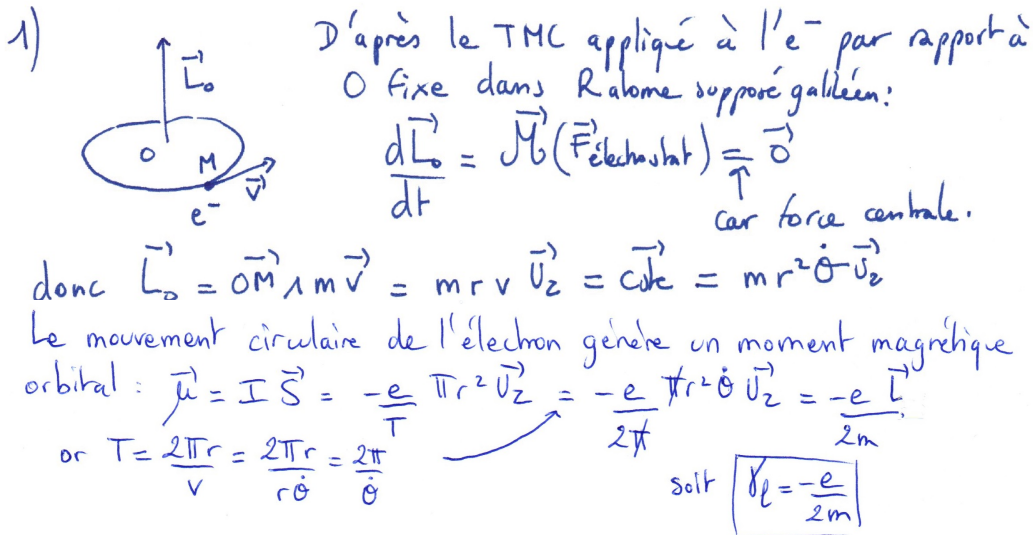 1)
D'après le TMC appliqué à l'e⁻ par rapport à
O fixe dans Ratome supposé galiléen:
L⃗₀
O M
e⁻ v⃗
dL⃗₀/dt = M⃗(F⃗électrostat) = 0⃗
car force centrale.
donc L⃗₀ = OM⃗ ∧ mv⃗ = m r v U⃗z = cste⃗ = mr²θ̇ U⃗z
Le mouvement circulaire de l'électron génère un moment magnétique
orbital : μ⃗ = I S⃗ = -e/T πr² U⃗z = -e/2π πr² θ̇ U⃗z = -e/2m L⃗
or T = 2πr/v = 2πr/rθ̇ = 2π/θ̇
soit γℓ = -e/2m